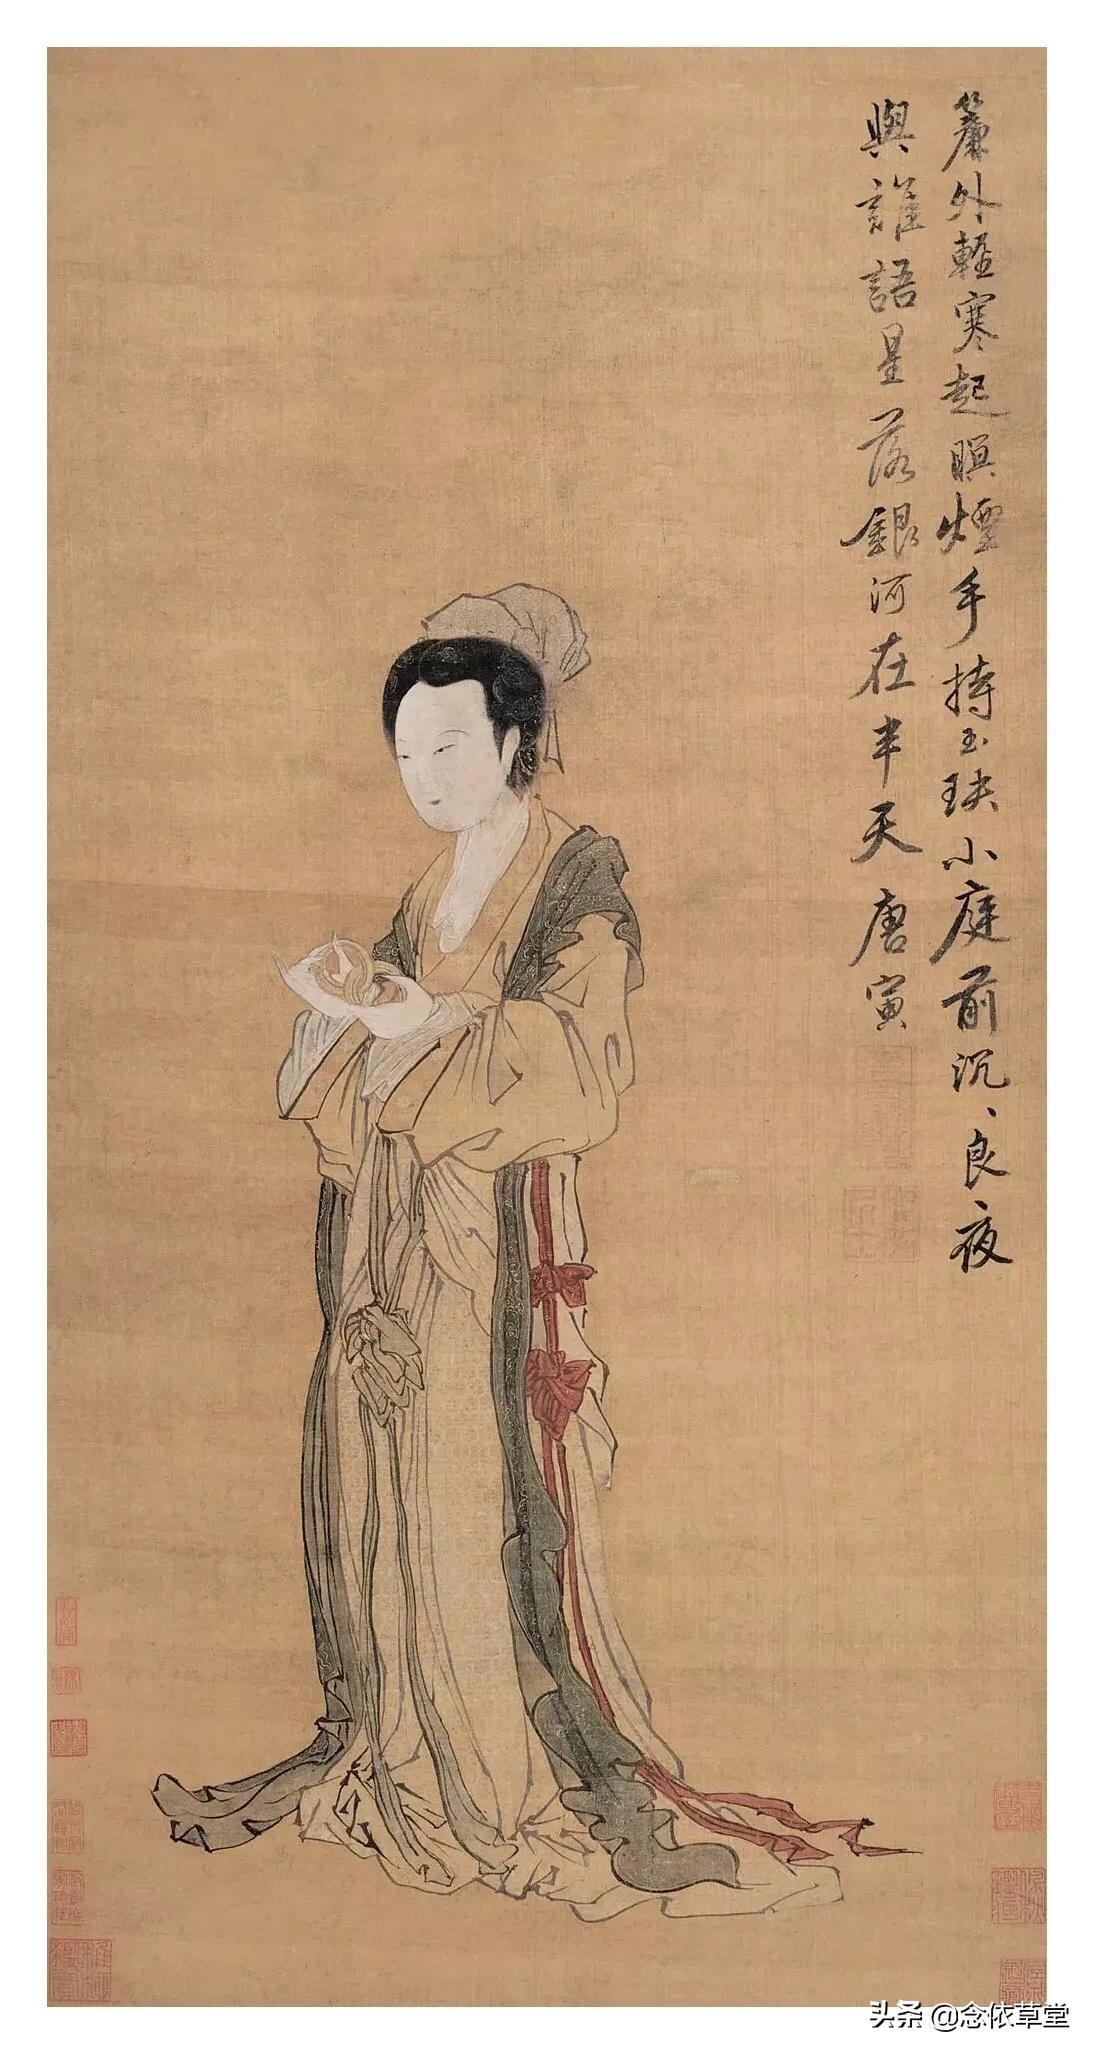 簾外輕寒起暝煙手持玉玦小庭前沉、良、夜
與誰語星落銀河在半天唐寅
头条 @念依草堂